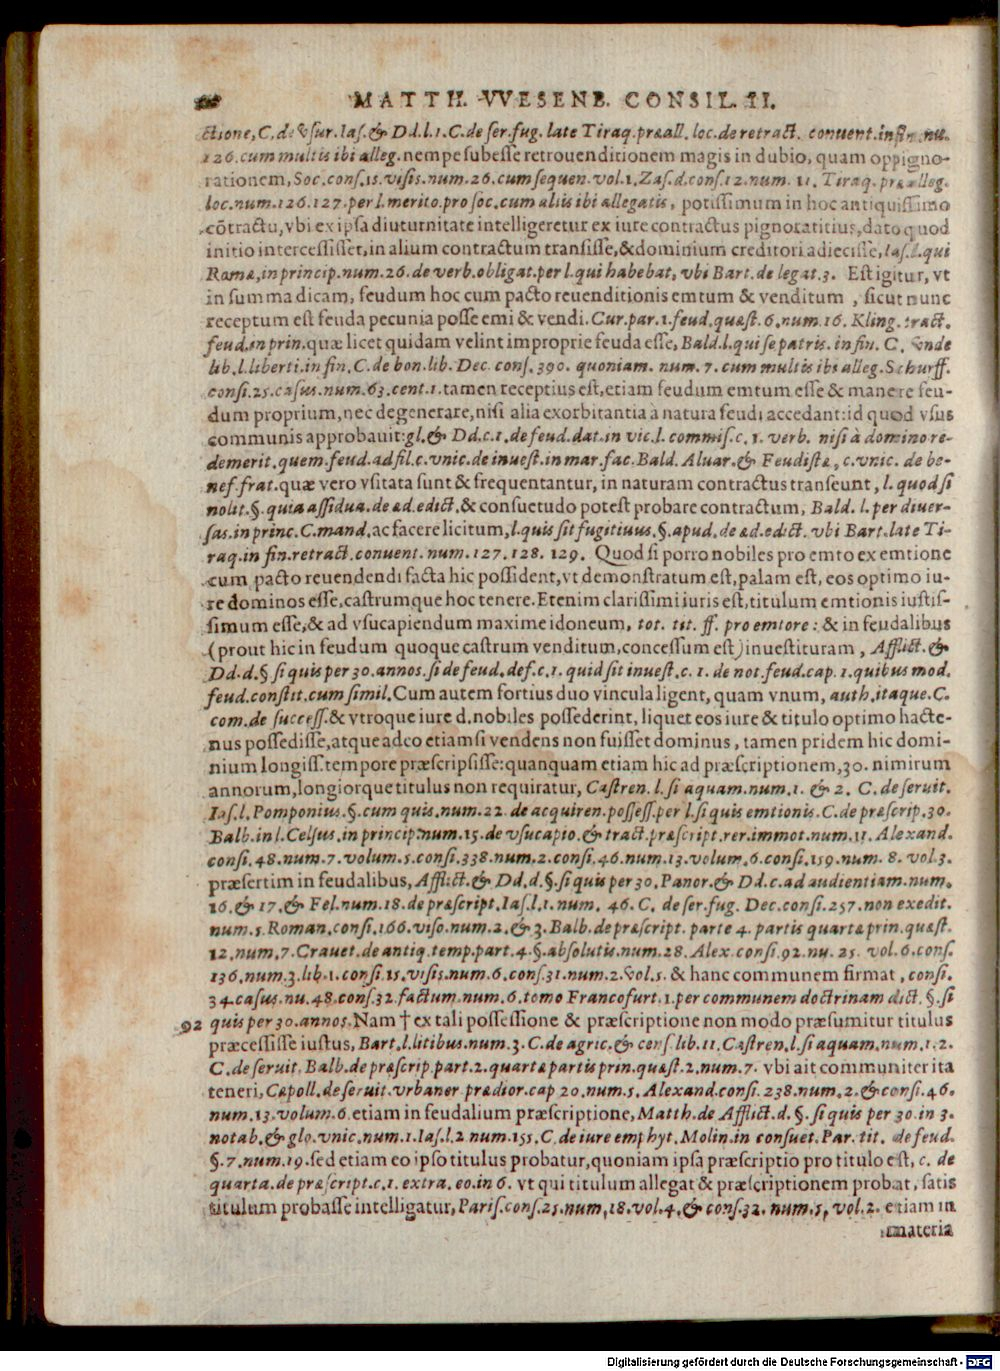 MATTH. VVESENB. CONSIL. II.
ctione, C. de vsur. Ias. & Dd. l. 1. C. de ser. fug. late Tiraq. præall. loc. de retract. conuent. in fin. nu.
126. cum multis ibi alleg. nempe subesse retrouenditionem magis in dubio, quam oppigno-
rationem, Soc. cons. 15. visis. num. 26. cum sequen. vol. 1. Zas. d. cons. 12. num. 11. Tiraq. præalleg.
loc. num. 126. 127. per l. merito. pro soc. cum aliis ibi allegatis, potissimum in hoc antiquissimo
cōtractu, vbi ex ipsa diuturnitate intelligeretur ex iure contractus pignoratitius, dato quod
initio intercessisset, in alium contractum transisse, & dominium creditori adiecisse, Ias. l. qui
Romæ, in princip. num. 26. de verb. obligat. per l. qui habebat, vbi Bart. de legat. 3. Est igitur, vt
in summa dicam, feudum hoc cum pacto reuenditionis emtum & venditum, sicut nunc
receptum est feuda pecunia posse emi & vendi. Cur. par. 1. feud. quæst. 6. num. 16. Kling. tract.
feud. in prin. quæ licet quidam velint improprie feuda esse, Bald. l. qui se patris. in fin. C. vnde
lib. l. liberti. in fin. C. de bon. lib. Dec. cons. 390. quoniam. num. 7. cum multis ibi alleg. Schurff.
consi. 25. casus. num. 63. cent. 1. tamen receptius est, etiam feudum emtum esse & manere feu-
dum proprium, nec degenerare, nisi alia exorbitantia à natura feudi accedant: id quod vsus
communis approbauit: gl. & Dd. c. 1. de feud. dat. in vic. l. commis. c. 1. verb. nisi à domino re-
demerit. quem. feud. ad fil. c. vnic. de inuest. in mar. fac. Bald. Aluar. & Feudistæ, c. vnic. de be-
nef. frat. quæ vero vsitata sunt & frequentantur, in naturam contractus transeunt, l. quod si
nolit. §. quia assidua. de æd. edict. & consuetudo potest probare contractum, Bald. l. per diuer-
sas. in princ. C. mand. ac facere licitum, l. quis sit fugitiuus. §. apud. de æd. edict. vbi Bart. late Ti-
raq. in fin. retract. conuent. num. 127. 128. 129. Quod si porro nobiles pro emto ex emtione
cum pacto reuendendi facta hic possident, vt demonstratum est, palam est, eos optimo iu-
re dominos esse, castrumque hoc tenere. Etenim clarissimi iuris est, titulum emtionis iustis-
simum esse, & ad vsucapiendum maxime idoneum, tot. tit. ff. pro emtore: & in feudalibus
(prout hic in feudum quoque castrum venditum, concessum est) inuestituram, Afflict. &
Dd. d. §. si quis per 30. annos. si de feud. def. c. 1. quid sit inuest. c. 1. de not. feud. cap. 1. quibus mod.
feud. constit. cum simil. Cum autem fortius duo vincula ligent, quam vnum, auth. itaque. C.
com. de success. & vtroque iure d. nobiles possederint, liquet eos iure & titulo optimo hacte-
nus possedisse, atque adeo etiamsi vendens non fuisset dominus, tamen pridem hic domi-
nium longiss. tempore præscripsisse: quanquam etiam hic ad præscriptionem, 30. nimirum
annorum, longiorque titulus non requiratur, Castren. l. si aquam. num. 1. & 2. C. de seruit.
Ias. l. Pomponius. §. cum quis. num. 22. de acquiren. possess. per l. si quis emtionis. C. de præscrip. 30.
Balb. in l. Celsus. in princip. num. 15. de vsucapio. & tract. præscript. rer. immot. num. 11. Alexand.
consi. 48. num. 7. volum. 5. consi. 338. num. 2. consi. 46. num. 13. volum. 6. consi. 159. num. 8. vol. 3.
præsertim in feudalibus, Afflict. & Dd. d. §. si quis per 30. Panor. & Dd. c. ad audientiam. num.
16. & 17. & Fel. num. 18. de præscript. Ias. l. 1. num. 46. C. de ser. fug. Dec. consi. 257. non exedit.
num. 5. Roman. consi. 166. viso. num. 2. & 3. Balb. de præscript. parte 4. partis quartæ prin. quæst.
12. num. 7. Crauet. de antiq. temp. part. 4. §. absolutis. num. 28. Alex. consi. 92. nu. 25. vol. 6. cons.
136. num. 3. lib. 1. consi. 15. visis. num. 6. cons. 31. num. 2. vol. 5. & hanc communem firmat, consi.
34. casus. nu. 48. cons. 32. factum. num. 6. tomo Francofurt. 1. per communem doctrinam dict. §. si
92 quis per 30. annos. Nam † ex tali possessione & præscriptione non modo præsumitur titulus
præcessisse iustus, Bart. l. litibus. num. 3. C. de agric. & cens. lib. 11. Castren. l. si aquam. num. 1. 2.
C. de seruit. Balb. de præscrip. part. 2. quartæ partis prin. quæst. 2. num. 7. vbi ait communiter ita
teneri, Cæpoll. de seruit. vrba. ner. prædior. cap 20. num. 5. Alexand. consi. 238. num. 2. & consi. 46.
num. 13. volum. 6. etiam in feudalium præscriptione, Matth. de Afflict. d. §. si quis per 30. in 3.
notab. & glo. vnic. num. 1. Ias. l. 2 num. 155. C. de iure emphyt. Molin. in consuet. Par. tit. de feud.
§. 7. num. 19. sed etiam eo ipso titulus probatur, quoniam ipsa præscriptio pro titulo est, c. de
quarta. de præscript. c. 1. extra. eo. in 6. vt qui titulum allegat & præscriptionem probat, satis
titulum probasse intelligatur, Paris. cons. 25. num. 18. vol. 4. & cons. 32. num. 5. vol. 2. etiam in
materia
Digitalisierung gefördert durch die Deutsche Forschungsgemeinschaft - DFG